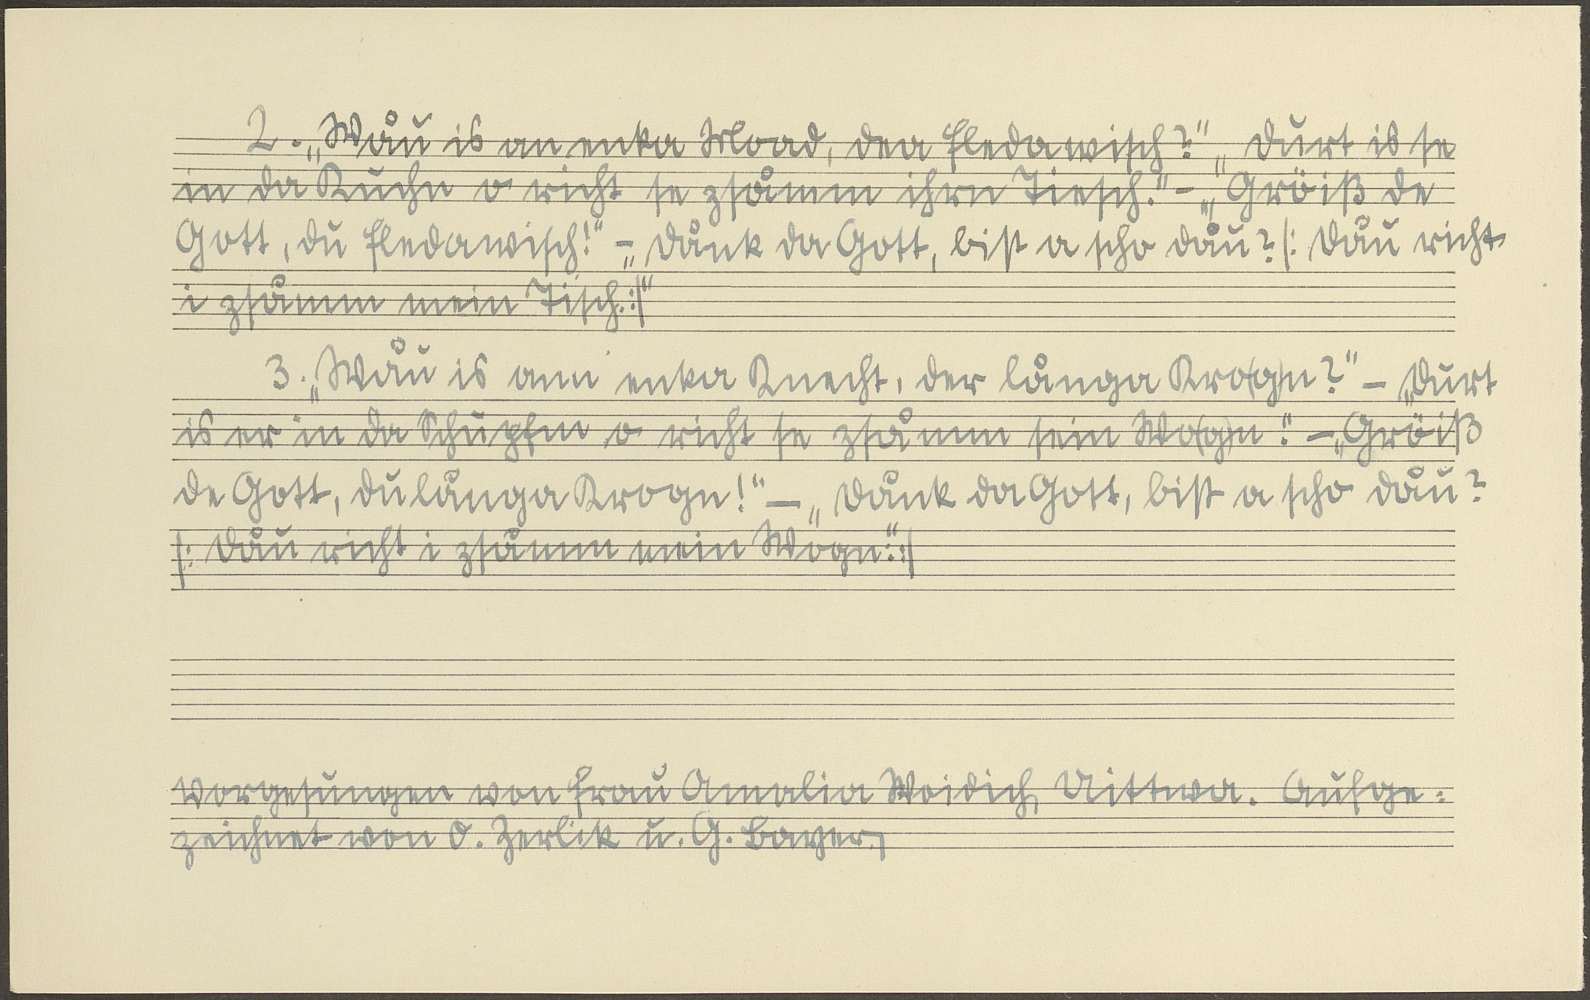 2. „Wåu is an enka Moad, dea Fledawisch?" „Durt is se
in da Kuchn o richt se zsåmm ihrn Tiesch." – „Gröiß de
Gott, du Fledawisch!" – „Dånk da Gott, bist a scho dåu? |: Dåu richt
i zsåmm mein Tisch. :|"
3. „Wåu is ann enka Knecht, der långa Kro(g)n?" – „Durt
is er in da Schupfm o richt se zsåmm sein Wo(g)n." – „Gröiß
de Gott, du långa Krogn!" – „Dånk da Gott, bist a scho dåu?
|: Dåu richt i zsåmm mein Wogn." :|
Vorgesungen von Frau Amalia Weidich, Uittwa. Aufge-
zeichnet von O. Zerlik u. G. Bayer.